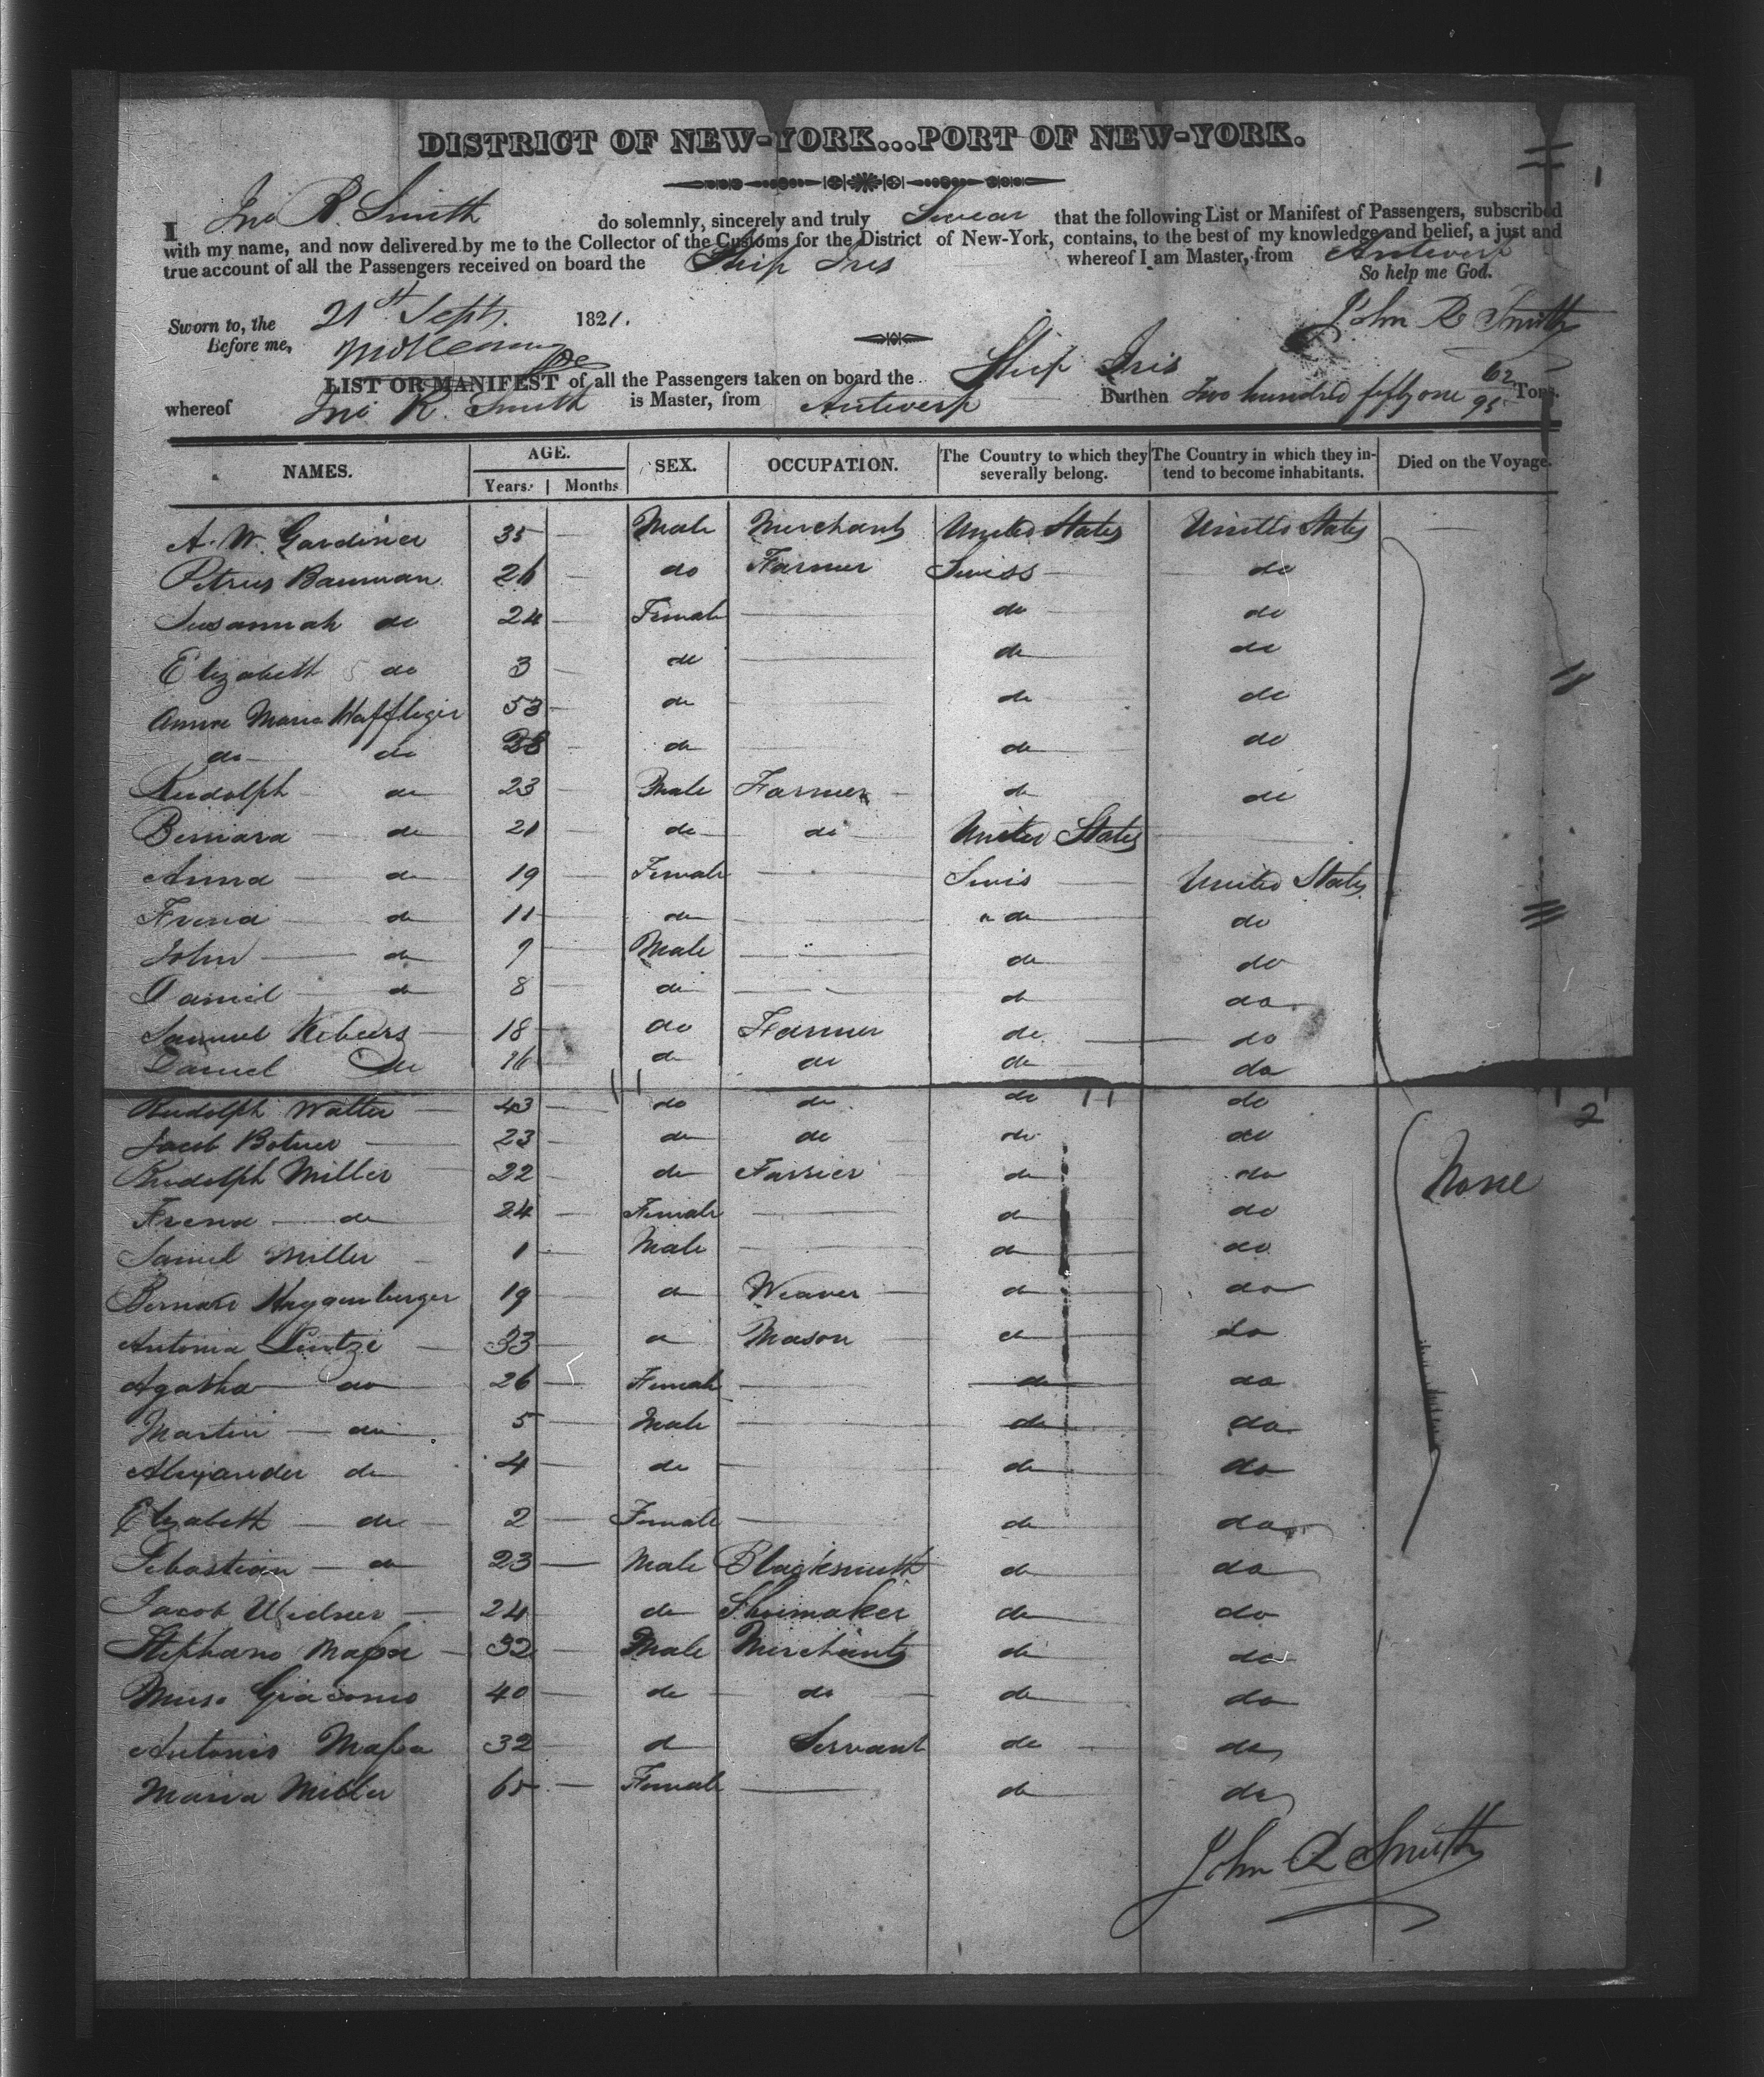 DISTRICT OF NEW-YORK...PORT OF NEW-YORK.
1
I Jno R. Smith do solemnly, sincerely and truly Swear that the following List or Manifest of Passengers, subscribed
with my name, and now delivered by me to the Collector of the Customs for the District of New-York, contains, to the best of my knowledge and belief, a just and
true account of all the Passengers received on board the Ship Iris whereof I am Master, from Antwerp
So help me God.
Sworn to, the 21st Septr. 1821.
John R Smith
Before me,
LIST OR MANIFEST of all the Passengers taken on board the Ship Iris
whereof Jno R. Smith is Master, from Antwerp Burthen Two hundred fifty one 62/95 Tons.
NAMES. AGE. SEX. OCCUPATION. The Country to which they severally belong. The Country in which they intend to become inhabitants. Died on the Voyage.
Years. Months
A. W. Gardiner 35 — Male Merchant United States United States —
Petrus Bauman 26 — do Farmer Swiss — do
Susannah do 24 — Female — do do
Elizabeth do 3 — do — do do
Anna Maria Haffliger 53 — do — do do
do do 28 — do — do do
Rudolph do 23 — Male Farmer do do
Bernard do 21 — do do United States —
Anna do 19 — Female — Swis United States
Frena do 11 — do — do do
John do 9 — Male — do do
Daniel do 8 — do — do do
Samuel 18 — do Farmer do do
Daniel do 16 — do do do do
Rudolph Walter 43 — do do do do 2
Jacob Botner 23 — do do do do
Rudolph Miller 22 — do Farrier do do None
Frena do 24 — Female — do do
Samuel Miller 1 — Male — do do
Bernard Haggenburger 19 — do Weaver do do
Antonia Lintzi 33 — do Mason do do
Agatha do 26 — Female — do do
Martin do 5 — Male — do do
Alexander do 4 — do — do do
Elizabeth do 2 — Female — do do
Sebastian do 23 — Male Blacksmith do do
Jacob Widmer 24 do Shoemaker do do
Stephano Massa 32 — Male Merchant do do
Muso Giacomo 40 — do do do do
Antonio Massa 32 — do Servant do do
Maria Miller 65 — Female — do do
John R Smith